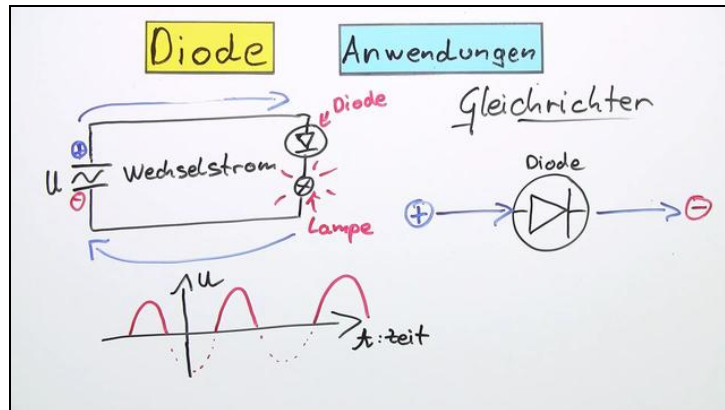 Diode
Anwendungen
Gleichrichter
Diode
U
⊕
~
⊖
Wechselstrom
Lampe
U
t: zeit
Diode
⊕
⊖